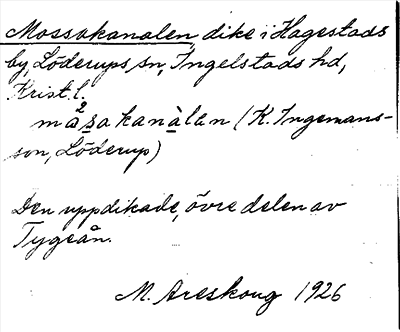 Mossakanalen, dike i Hagestads
by, Löderups sn, Ingelstads hd,
Krist. l.
må²sakanàlan (K. Ingemans-
son, Löderup)
Den uppdikade, övre delen av
Tygeån.
M. Areskoug 1926